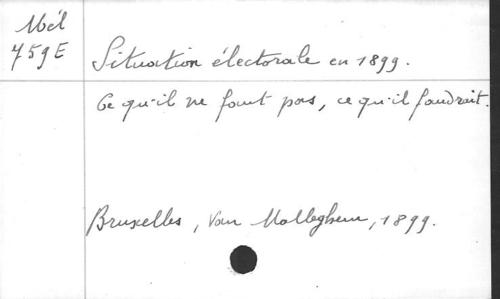 Mél
759E
Situation électorale en 1899.
Ce qu'il ne faut pas, ce qu'il faudrait.
Bruxelles, Van Molleghem, 1899.